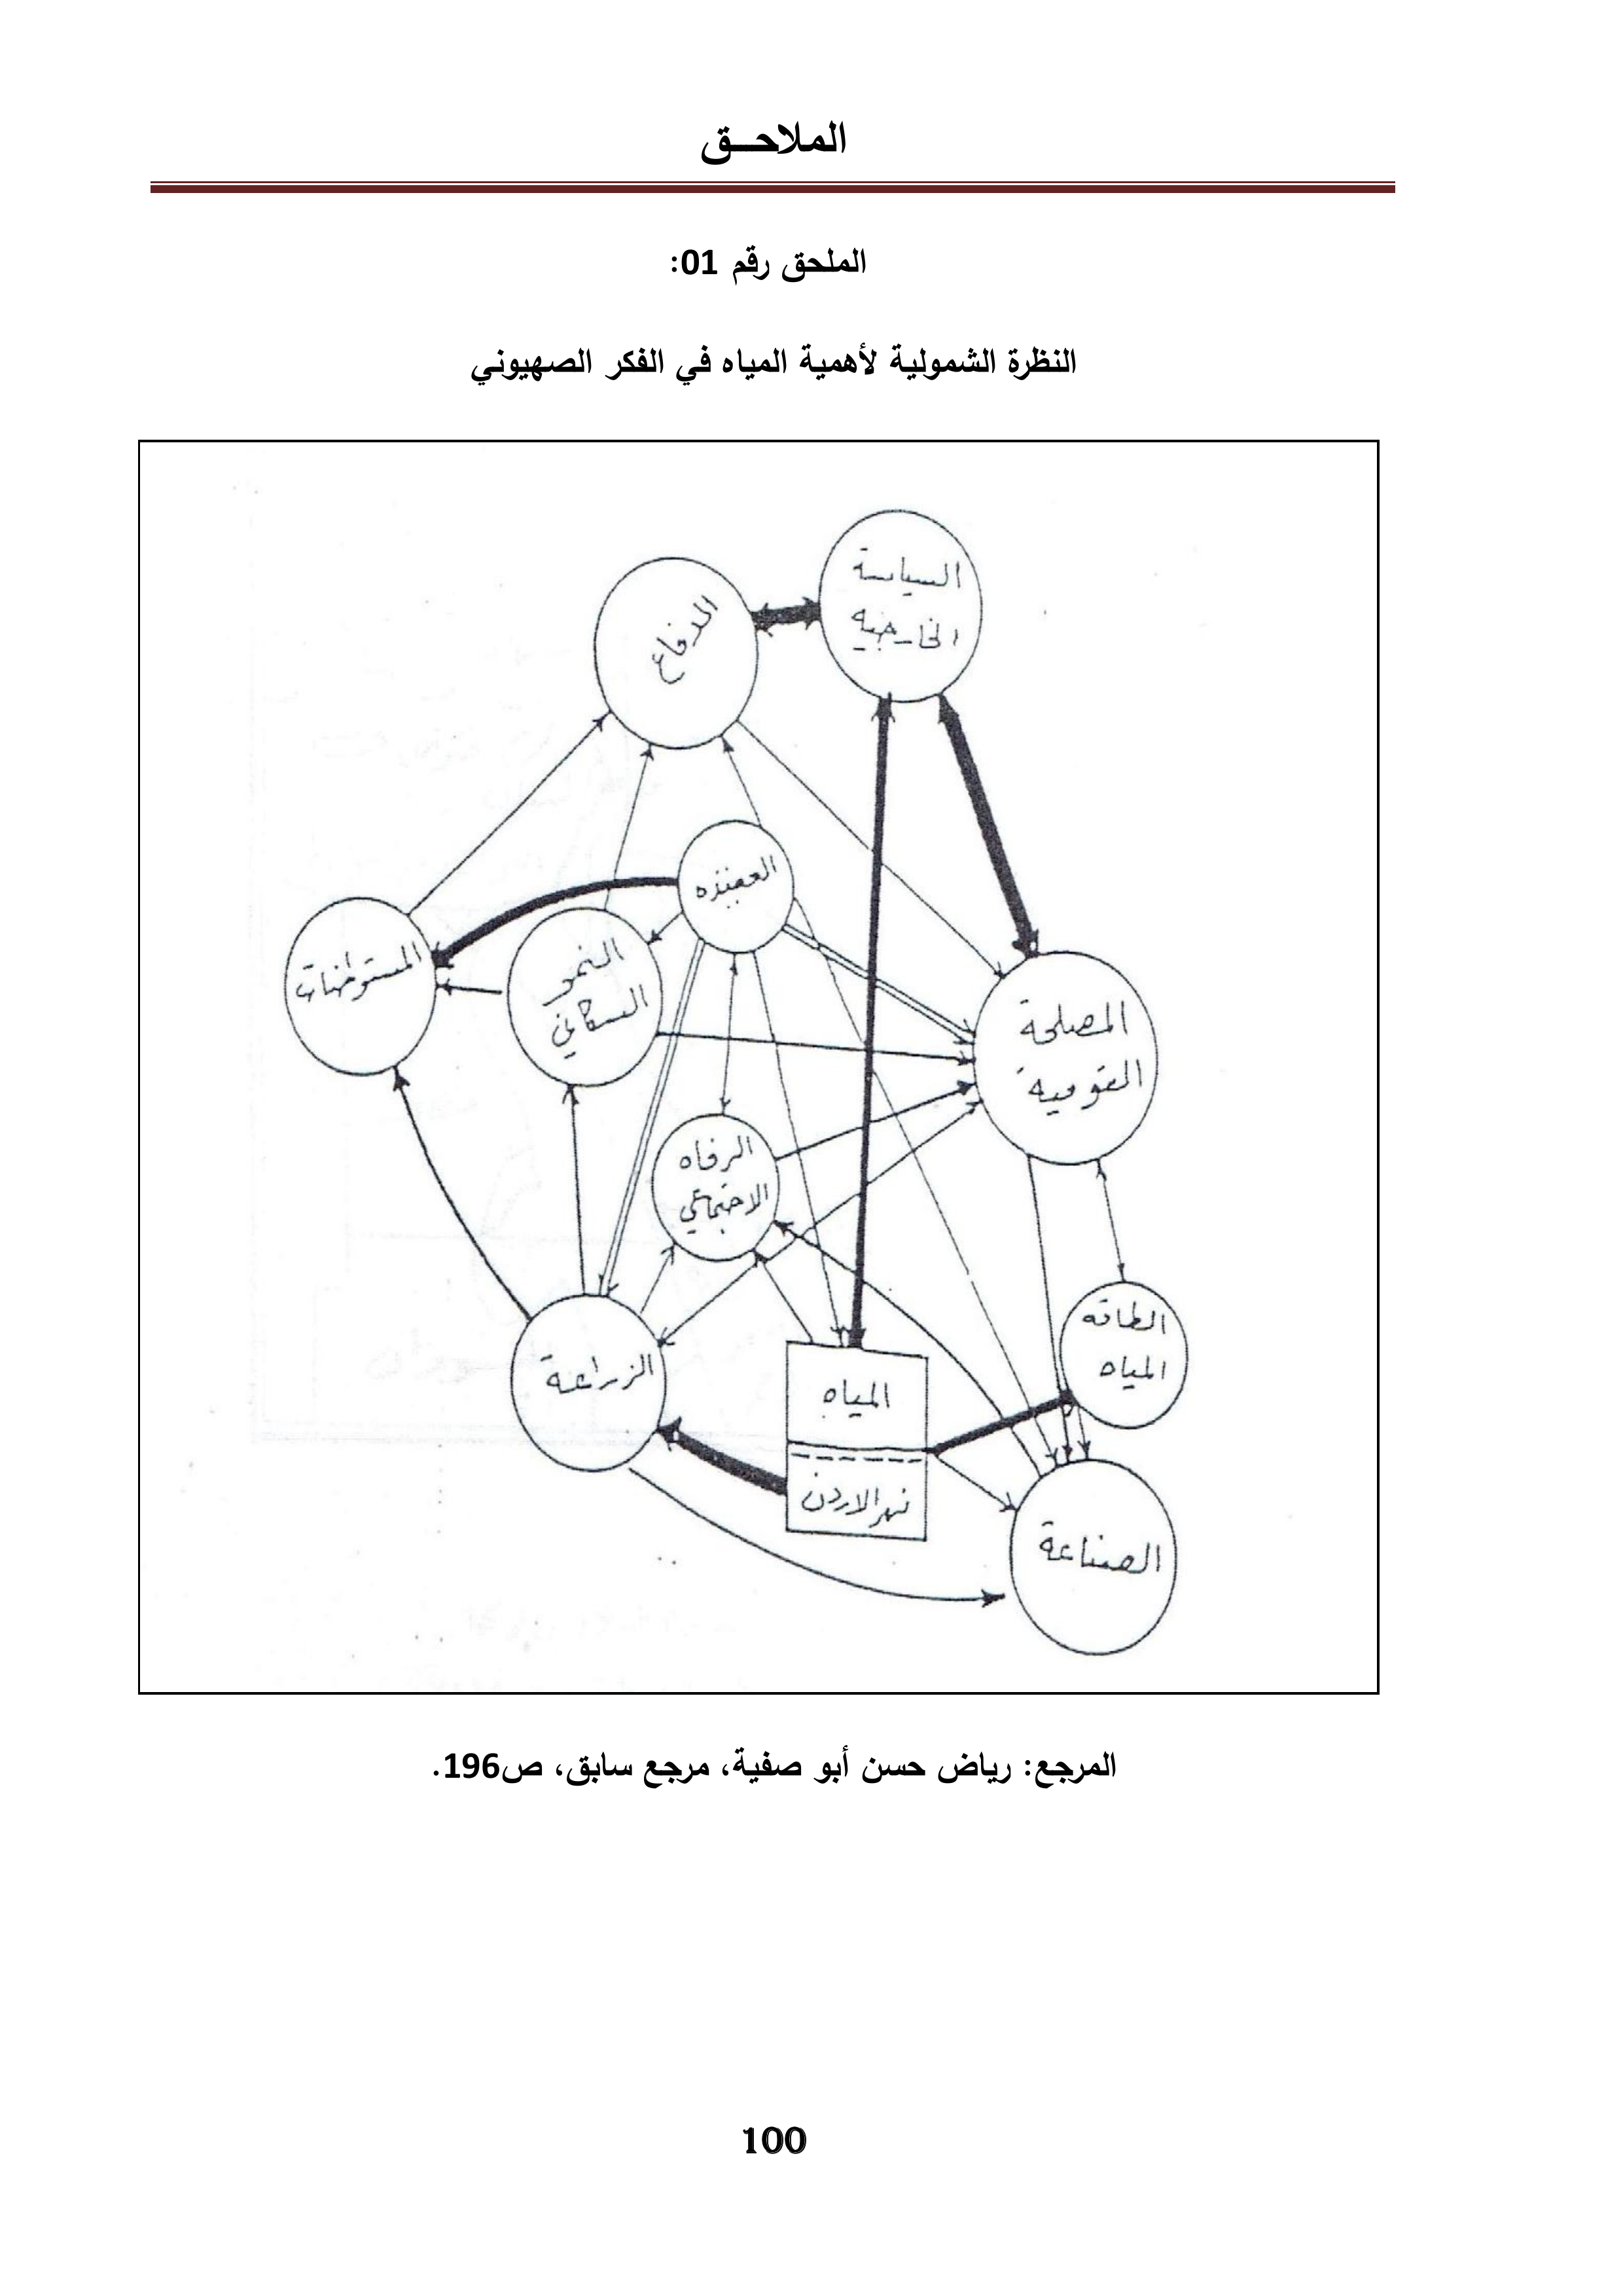 الملاحــق
الملحق رقم 01:
النظرة الشمولية لأهمية المياه في الفكر الصهيوني
السياسة
الخارجيه
الدفاع
العقيده
المستوطنات
النمو
السكاني
المصلحة
القوميه
الرفاه
الاجتماعي
الطاقه
المياه
الزراعة
المياه
نهر الاردن
الصناعة
المرجع: رياض حسن أبو صفية، مرجع سابق، ص196.
100